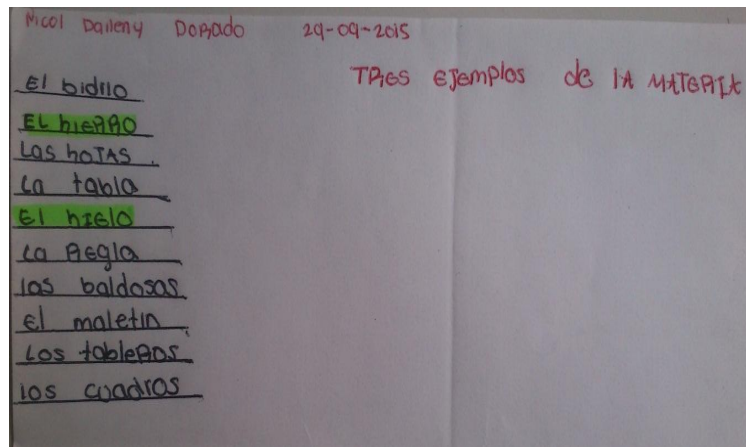 Nicol Daileny DORado 29-09-2015
TRes ejemplos de lA MATERIA
El bidrio
EL hIERRO
Las hoJAS.
La tabla
El hIElo
La Regla
las baldosas
El maletin
Los tableROS
los cuadros